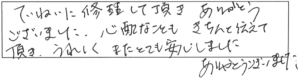 ていねいに修理して頂き ありがとう
ございました。心配なことも きちんと伝えて
頂き、うれしく またとても安心しました
ありがとうございました。